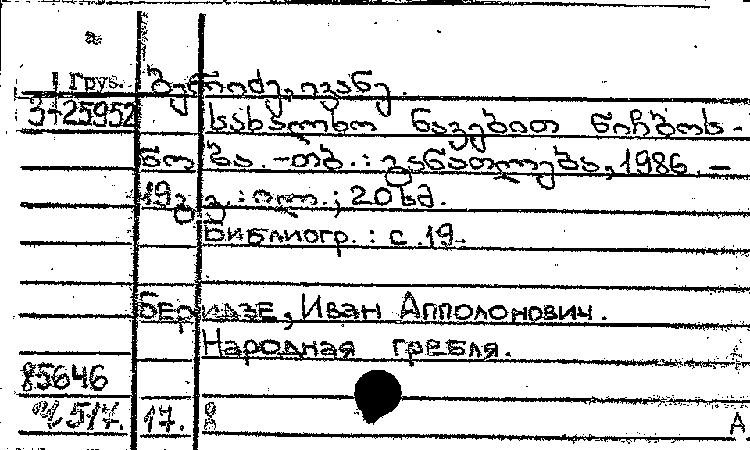 Груз. ბერიძე, ივანე.
3+25952 სახალხო ნავებით ნიჩბოს-
ნობა. - თბ.: განათლება, 1986. -
19 გვ.: ილ.; 20 სმ.
Библиогр.: с. 19.
Беридзе, Иван Апполонович.
Народная гребля.
85646
517. 17. 8 А